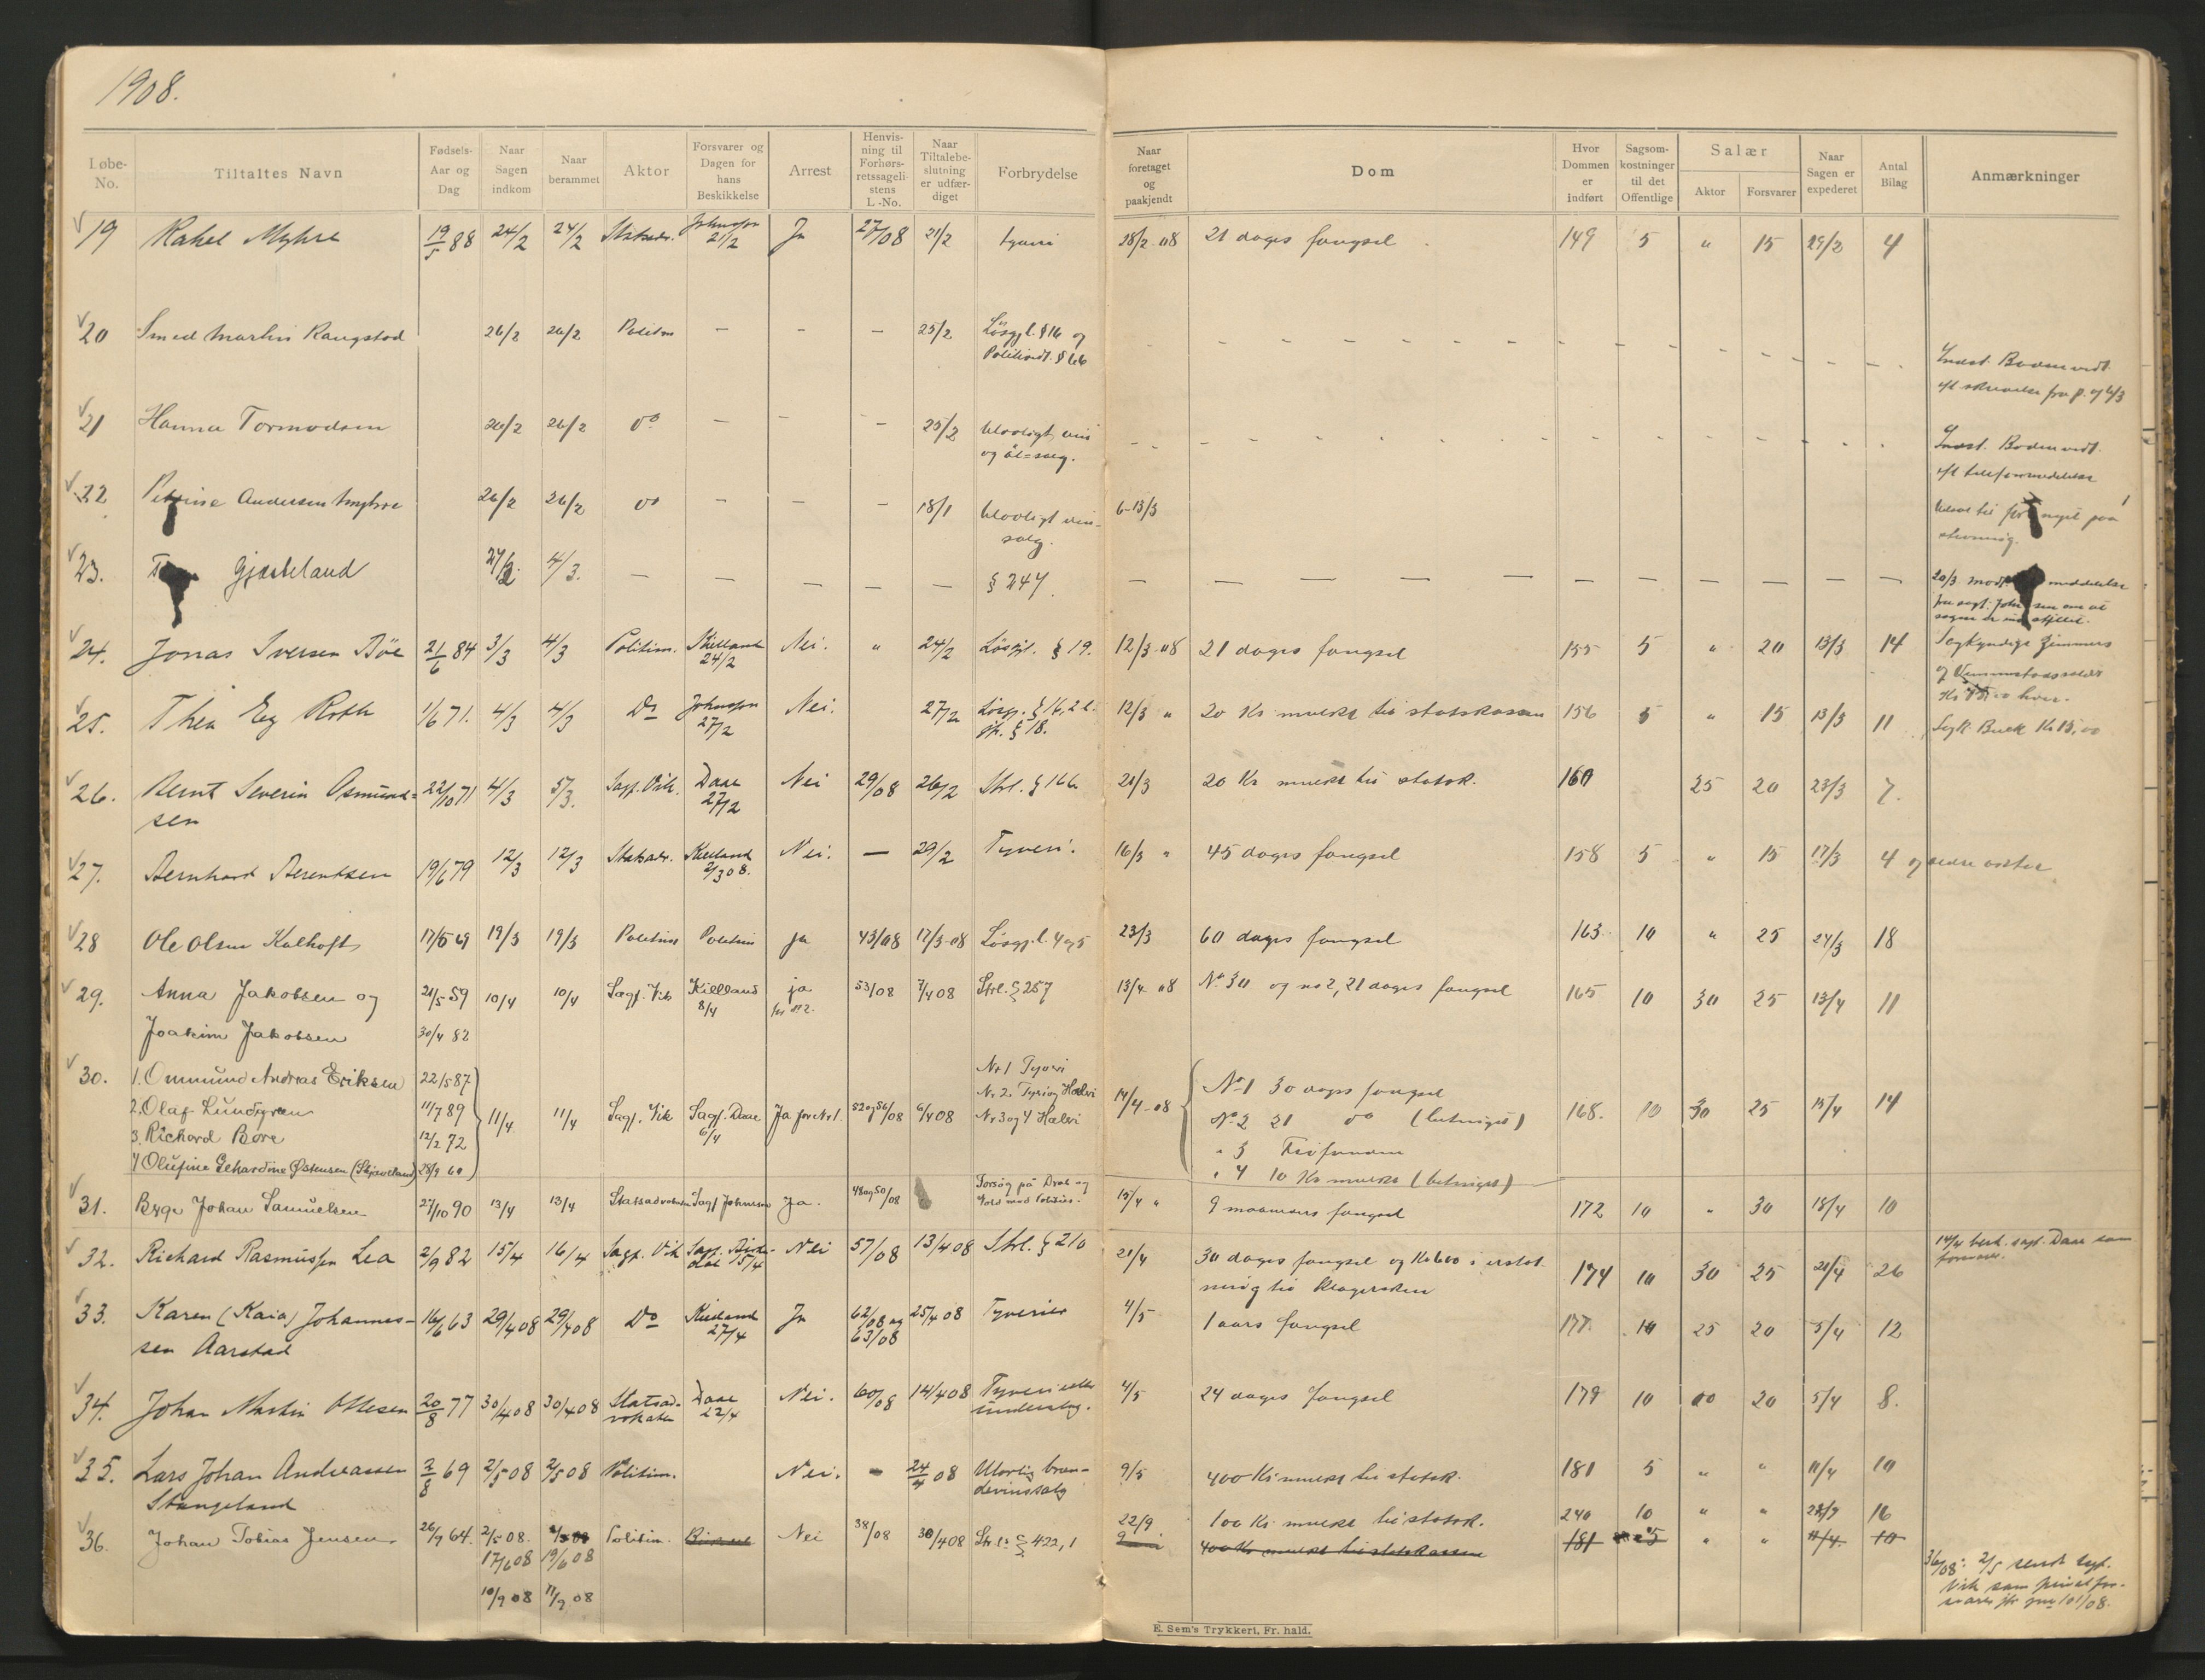 1908.
Løbe-No. Tiltaltes Navn Fødsels-Aar og Dag Naar Sagen indkom Naar berammet Aktor Forsvarer og Dagen for hans Beskikkelse Arrest Henvisning til Forhørsretssagelistens L.-No. Naar Tiltalebeslutning er udfærdiget Forbrydelse Naar foretaget og paakjendt Dom Hvor Dommen er indført Sagsomkostninger til det Offentlige Salær Aktor Forsvarer Naar Sagen er expederet Antal Bilag Anmærkninger
19 Rakel Myhre 19/5 88 24/2 24/2 Statsadv. Johnsson 21/2 Ja 27/08 21/2 tyveri 28/2 08 21 dages fængsel 149 5 " 15 29/2 4
20 Smed Martin Raugstad 26/2 26/2 Politim — — — 25/2 Løsgjl. § 16 og
Politivedt. § 66
Indst. Bødem vedt.
21 Hanna Tormodsen 26/2 26/2 do — — — 25/2 Ulovligt vin
og øl=salg.
Indst. Bødem vedt.
22 Andersen Myhre 26/2 26/2 do — — — 18/1 Ulovligt vin-
salg. 6-13/3
23. Gjesteland 27/2 4/3. — — — — — § 247. — —
20/3 meddelelse
24. Jonas Iversen Böe 21/6 84 3/3 4/3 Politim. Kielland 24/2 Nei. " 24/2 Løsgjl. § 19. 12/3-08 21 dages fængsel 155 5 " 20 13/3 14 Sagkyndige
hver.
25. Thea Eg Roth 1/6 71. 4/3 4/3 Do Johnsson 27/2 Nei. 27/2 Løsgj. § 16, 2 l.
jfr. § 18. 12/3 " 20 Kr mulkt til statskassen 156 5 " 15 13/3 11 Sagk. Kr 15,00
26. Bernt Severin Osmund=
sen 22/10 71 4/3 5/3. Sagf. Vik. Daae 27/2 Nei 29/08 26/2 Strl. § 166 21/3 20 Kr mulkt til statsk. 160 25 20 23/3 7.
27. Bernhard Berentsen 19/6 79 12/3 12/3 Statsadv. Kielland 2/3 08. Nei. — 29/2 Tyveri. 16/3 " 45 dages fængsel 158 5 " 15 17/3 4 og
28 Ole Olsen Kalhoft 17/5 69 19/3 19/3 Politim Politim ja 43/08 17/3-08 Løsgjl. 4 og 5 23/3 60 dages fængsel 163. 10 " 25 24/3 18
29. Anna Jakobsen og
Joakim Jakobsen 21/5 59
30/4 82 10/4 10/4 Sagf. Vik Kielland 8/4 ja
for no 2. 53/08 7/4 08 Strl. § 257 13/4 08 No 30 og no 2, 21 dages fængsel 165 10 30 25 13/4 11
30. 1. Ommund Andreas Eriksen 22/5 87 Nr 1 Tyveri No 1 30 dages fængsel
2. Olaf Lundgren 11/7 89 11/4 11/4 Sagf. Vik Sagf. Daae 6/4 Ja for Nr 1 52 og 56/08 6/4 08 Nr 2. Tyv. og Hæleri 14/4-08 No 2 21 do (betinget) 168. 10 30 25 15/4 14
3. Richard Bore 12/2 72 Nr 3 og 4 Hæleri " 3 Frifunden
4 Olufine Gehardine Østensen (Skjæveland) 28/9 60 " 4 10 Kr mulkt (betinget)
31. Birger Johan Samuelsen 27/10 90 13/4 13/4 Statsadvokaten Sagf Johnsson Ja. 48 og 50/08 Forsøg på Drab og
Vold mod Politiet. 15/4 " 9 maaneders fængsel 172 10 " 30 18/4 10
32. Richard Rasmussen Lea 2/9 82 15/4 16/4 Sagf. Vik Nei 57/08 13/4 08 Strl. § 210 21/4 30 dages fængsel og Kr 600 i erstat-
ning til klagersken 174 10 30 25 21/4 26 14/4 besk. sagf. Daae som
forsvarer.
33. Karen (Kaia) Johannes-
sen Aarstad 16/6 63 29/4 08 29/4 08 Do Kielland 27/4 Ja 62/08 og
63/08 25/4 08 Tyverier 4/5 1 aars fængsel 177. 10 25 20 5/4 12
34. Johan Martin Ottesen 20/8 77 30/4 08 30/4 08 Statsad-
vokaten Daae 22/4 Nei. 60/08 14/4 08 Tyveri eller
underslag. 4/5 24 dages fængsel 179 10 00 20 5/4 8.
35. Lars Johan Andreassen
Stangeland 2/8 69 2/5 08 2/5 08 Politim. Nei. — 24/4 08 Ulovlig bræn-
devinssalg 9/5 400 Kr mulkt til statsk. 181 5 " " 11/4 10
36. Johan Tobias Jensen 26/9 64. 2/5 08. 2/5 08 Politim. Nei 38/08 30/4 08 Str.l. § 422, 1 22/9 100 Kr mulkt til statsk. 240 10 " " 28/9 16
17/6 08 19/6 08 9/5 400 Kr mulkt til statskassen 181 5 " " 11/4. 10
10/9 08 11/9 08
36/08: 2/5 sendt sagf.
Vik som
E. Sem's Trykkeri, Fr. hald.